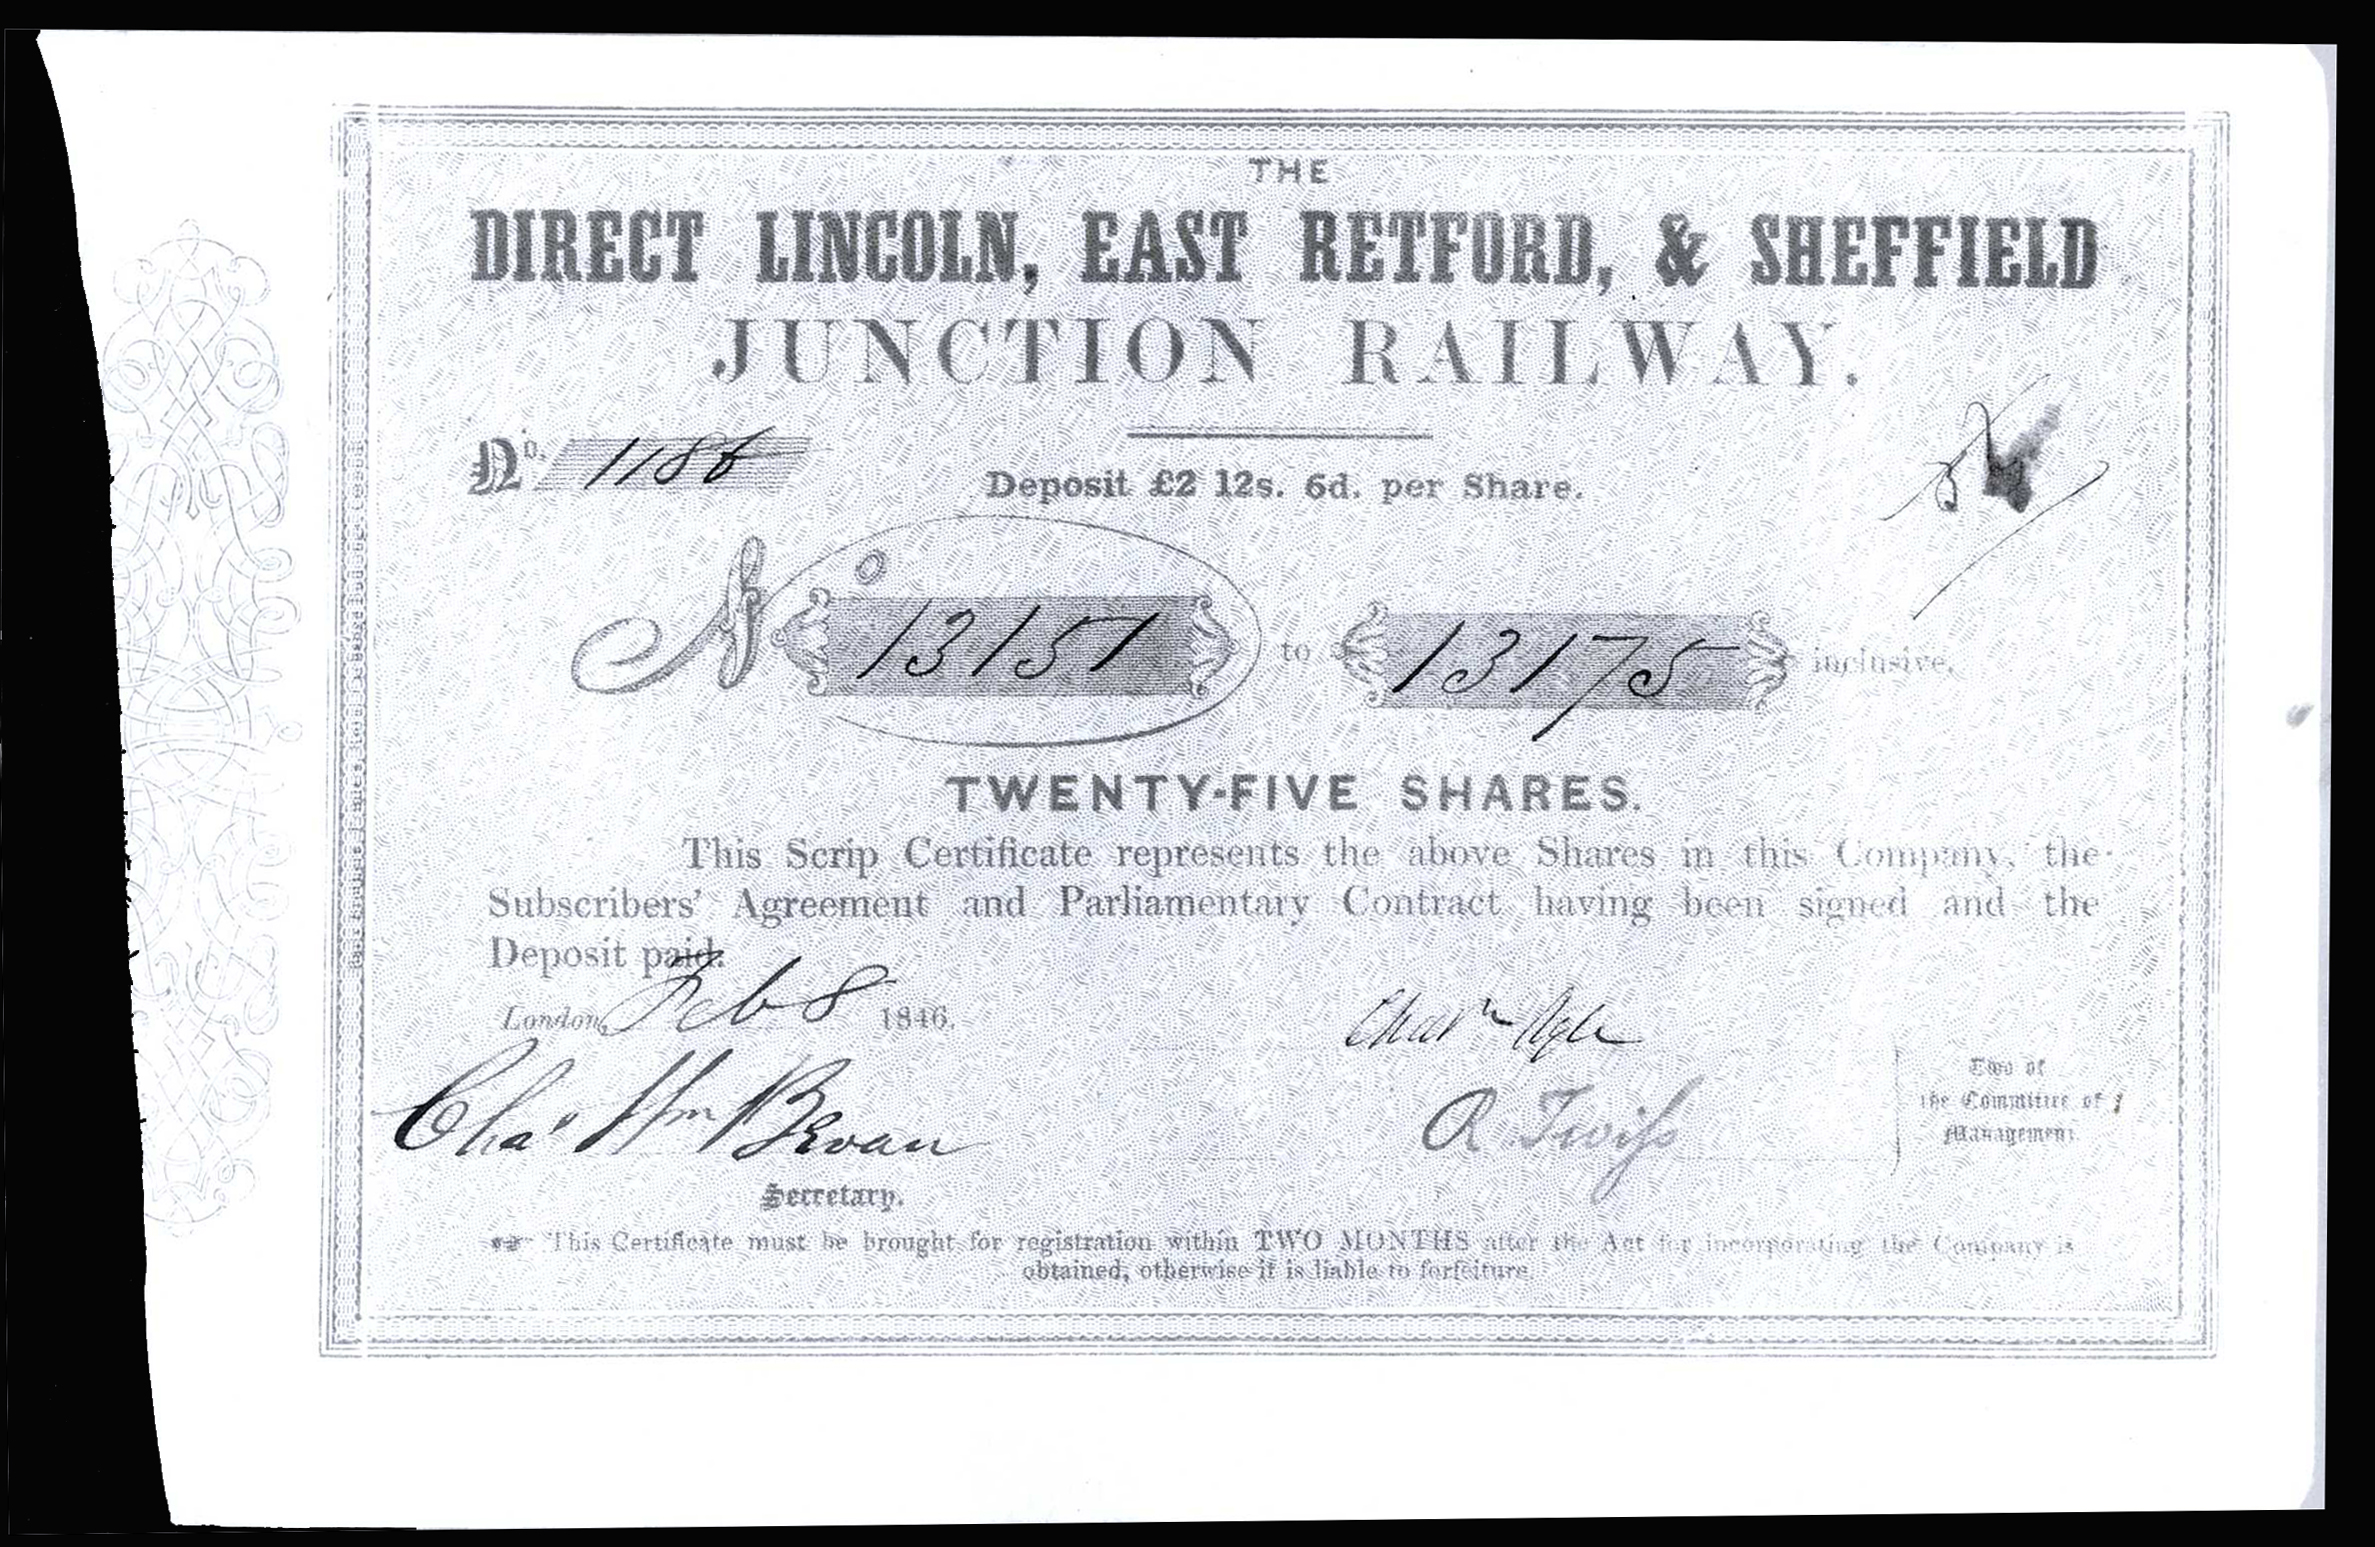 THE
DIRECT LINCOLN, EAST RETFORD, & SHEFFIELD
JUNCTION RAILWAY.
No. 1186
Deposit £2 12s. 6d. per Share.
No 13151 to 13175 inclusive.
TWENTY-FIVE SHARES.
This Scrip Certificate represents the above Shares in this Company, the
Subscribers' Agreement and Parliamentary Contract having been signed and the
Deposit paid.
London, Feb 8 1846.
Chas Wm Bevan
Secretary.
R Twiss
Two of
the Committee of
Management.
This Certificate must be brought for registration within TWO MONTHS after the Act for incorporating the Company is
obtained, otherwise it is liable to forfeiture.